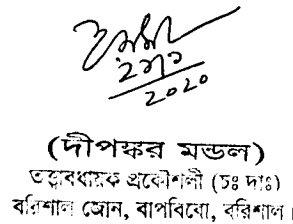 ২০২০
(দীপঙ্কর মন্ডল)
তত্ত্বাবধায়ক প্রকৌশলী (চঃ দাঃ)
বরিশাল জোন, বাপবিবো, বরিশাল।